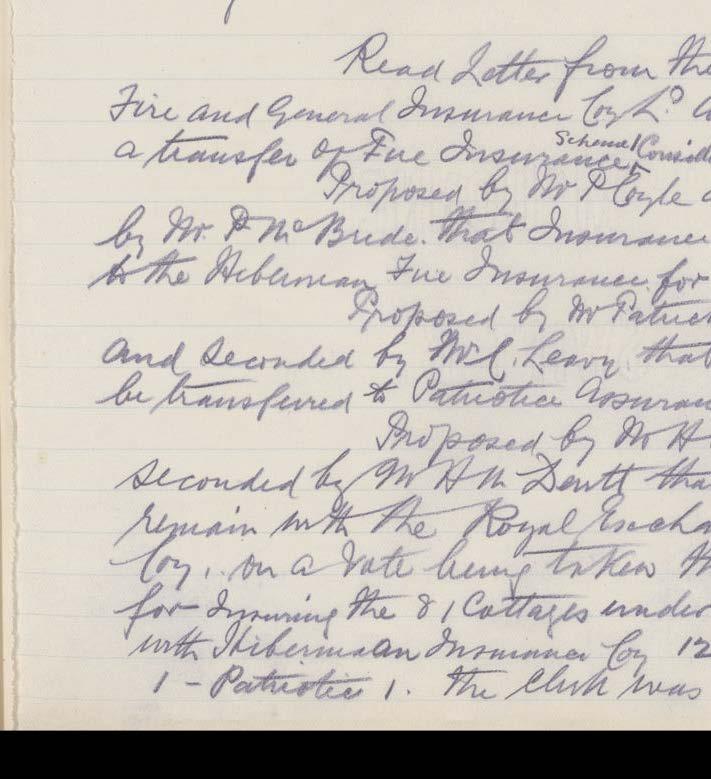 Read Letter from the
Fire and General Insurance Coy Ld
a transfer of Fire Insurance Scheme Conside
Proposed by Mr P Coyle
by Mr. P McBride. that Insurance
to the Hibernian Fire Insurance for
Proposed by Mr Patrick
and seconded by Mr C. Leavy. that
be transferred to Patriotic Assuran
Proposed by Mr H
seconded by Mr H Mc Devitt tha
remain with the Royal Excha
Coy. on a Vote being taken th
for Insuring the 81 Cottages under
with Hibernian Insurance Coy 12
1 - Patriotic 1. The Clerk was